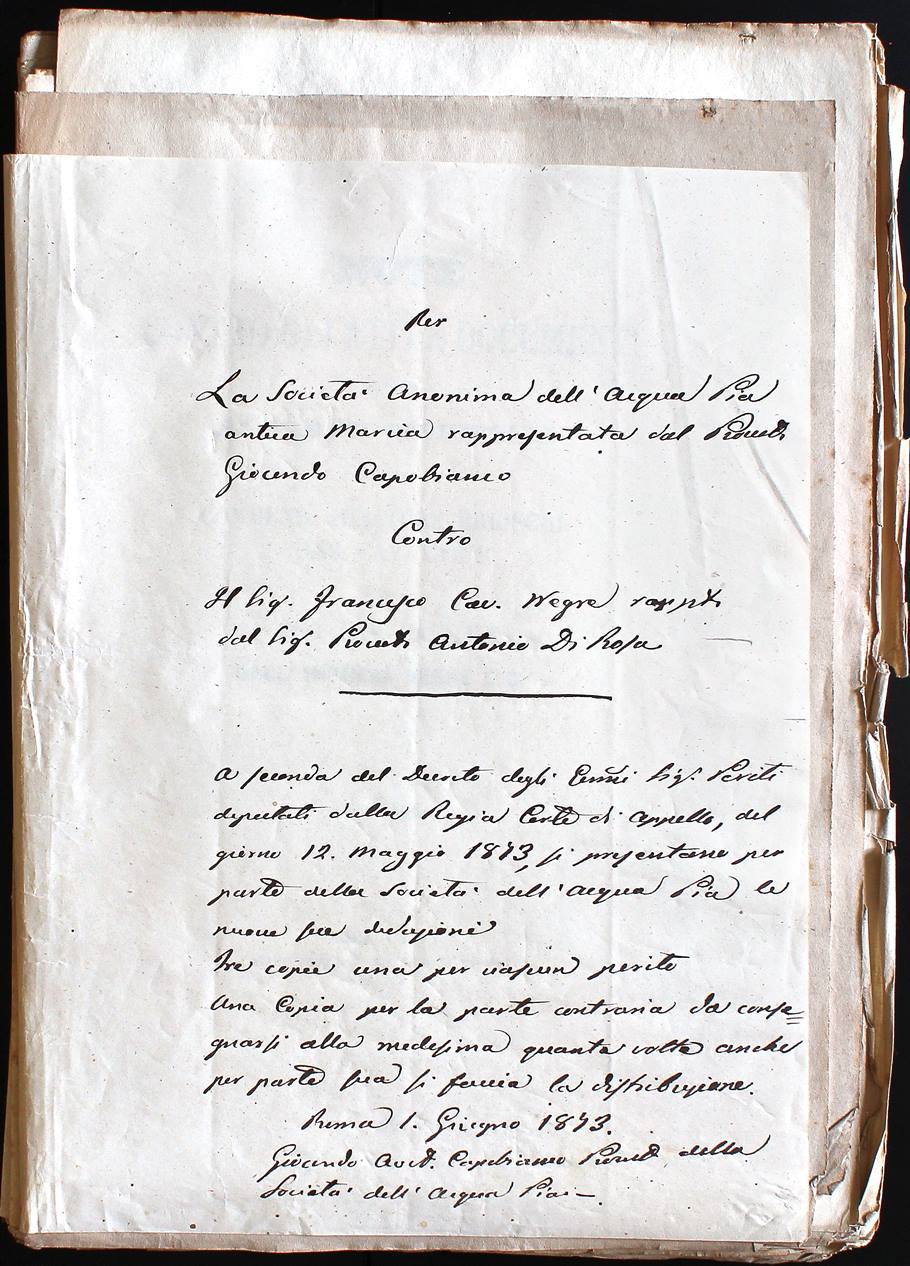 Per
La Società Anonima dell'Acqua Pia
antica Marcia rappresentata dal
Giocondo Capobianco
Contro
Il Sig. Francesco Cav. Negre
dal Sig. Antonio Di Rosa
A seconda del Decreto degli Sig. Periti
deputati dalla Regia Corte di Appello, del
giorno 12. Maggio 1873, si presentano per
parte della Società dell'Acqua Pia le
nuove sue deduzioni
Tre copie una per ciascun perito
Una Copia per la parte contraria da conse=
gnarsi alla medesima quante volte anche
per parte sua si faccia la distribuzione.
Roma 1. Giugno 1873.
Giocondo Avv. Capobianco della
Società dell'Acqua Pia